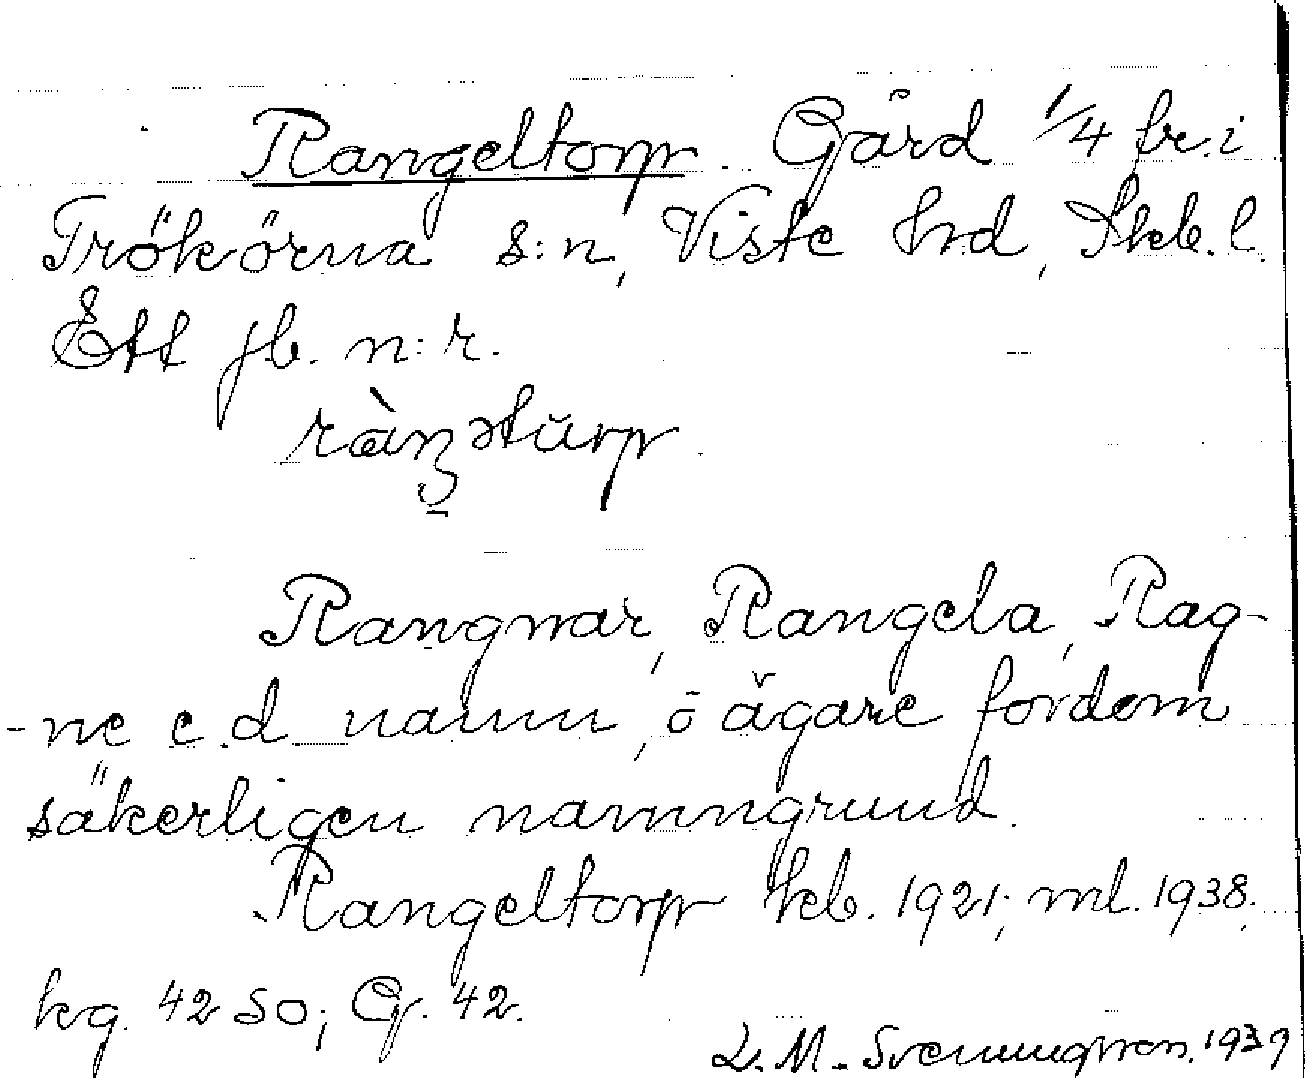 Rangeltorp. Gård 1/4 fr. i
Trökörna s:n, Viste hrd, Skb. l.
Ett jb. n:r.
Rangnar, Rangela, Rag-
-ne e.d namn, ö ägare fordom
säkerligen namngrund.
Rangeltorp kb. 1921; ml. 1938.
kg. 42 SO; G. 42.
L. M. Svenungsson. 1939